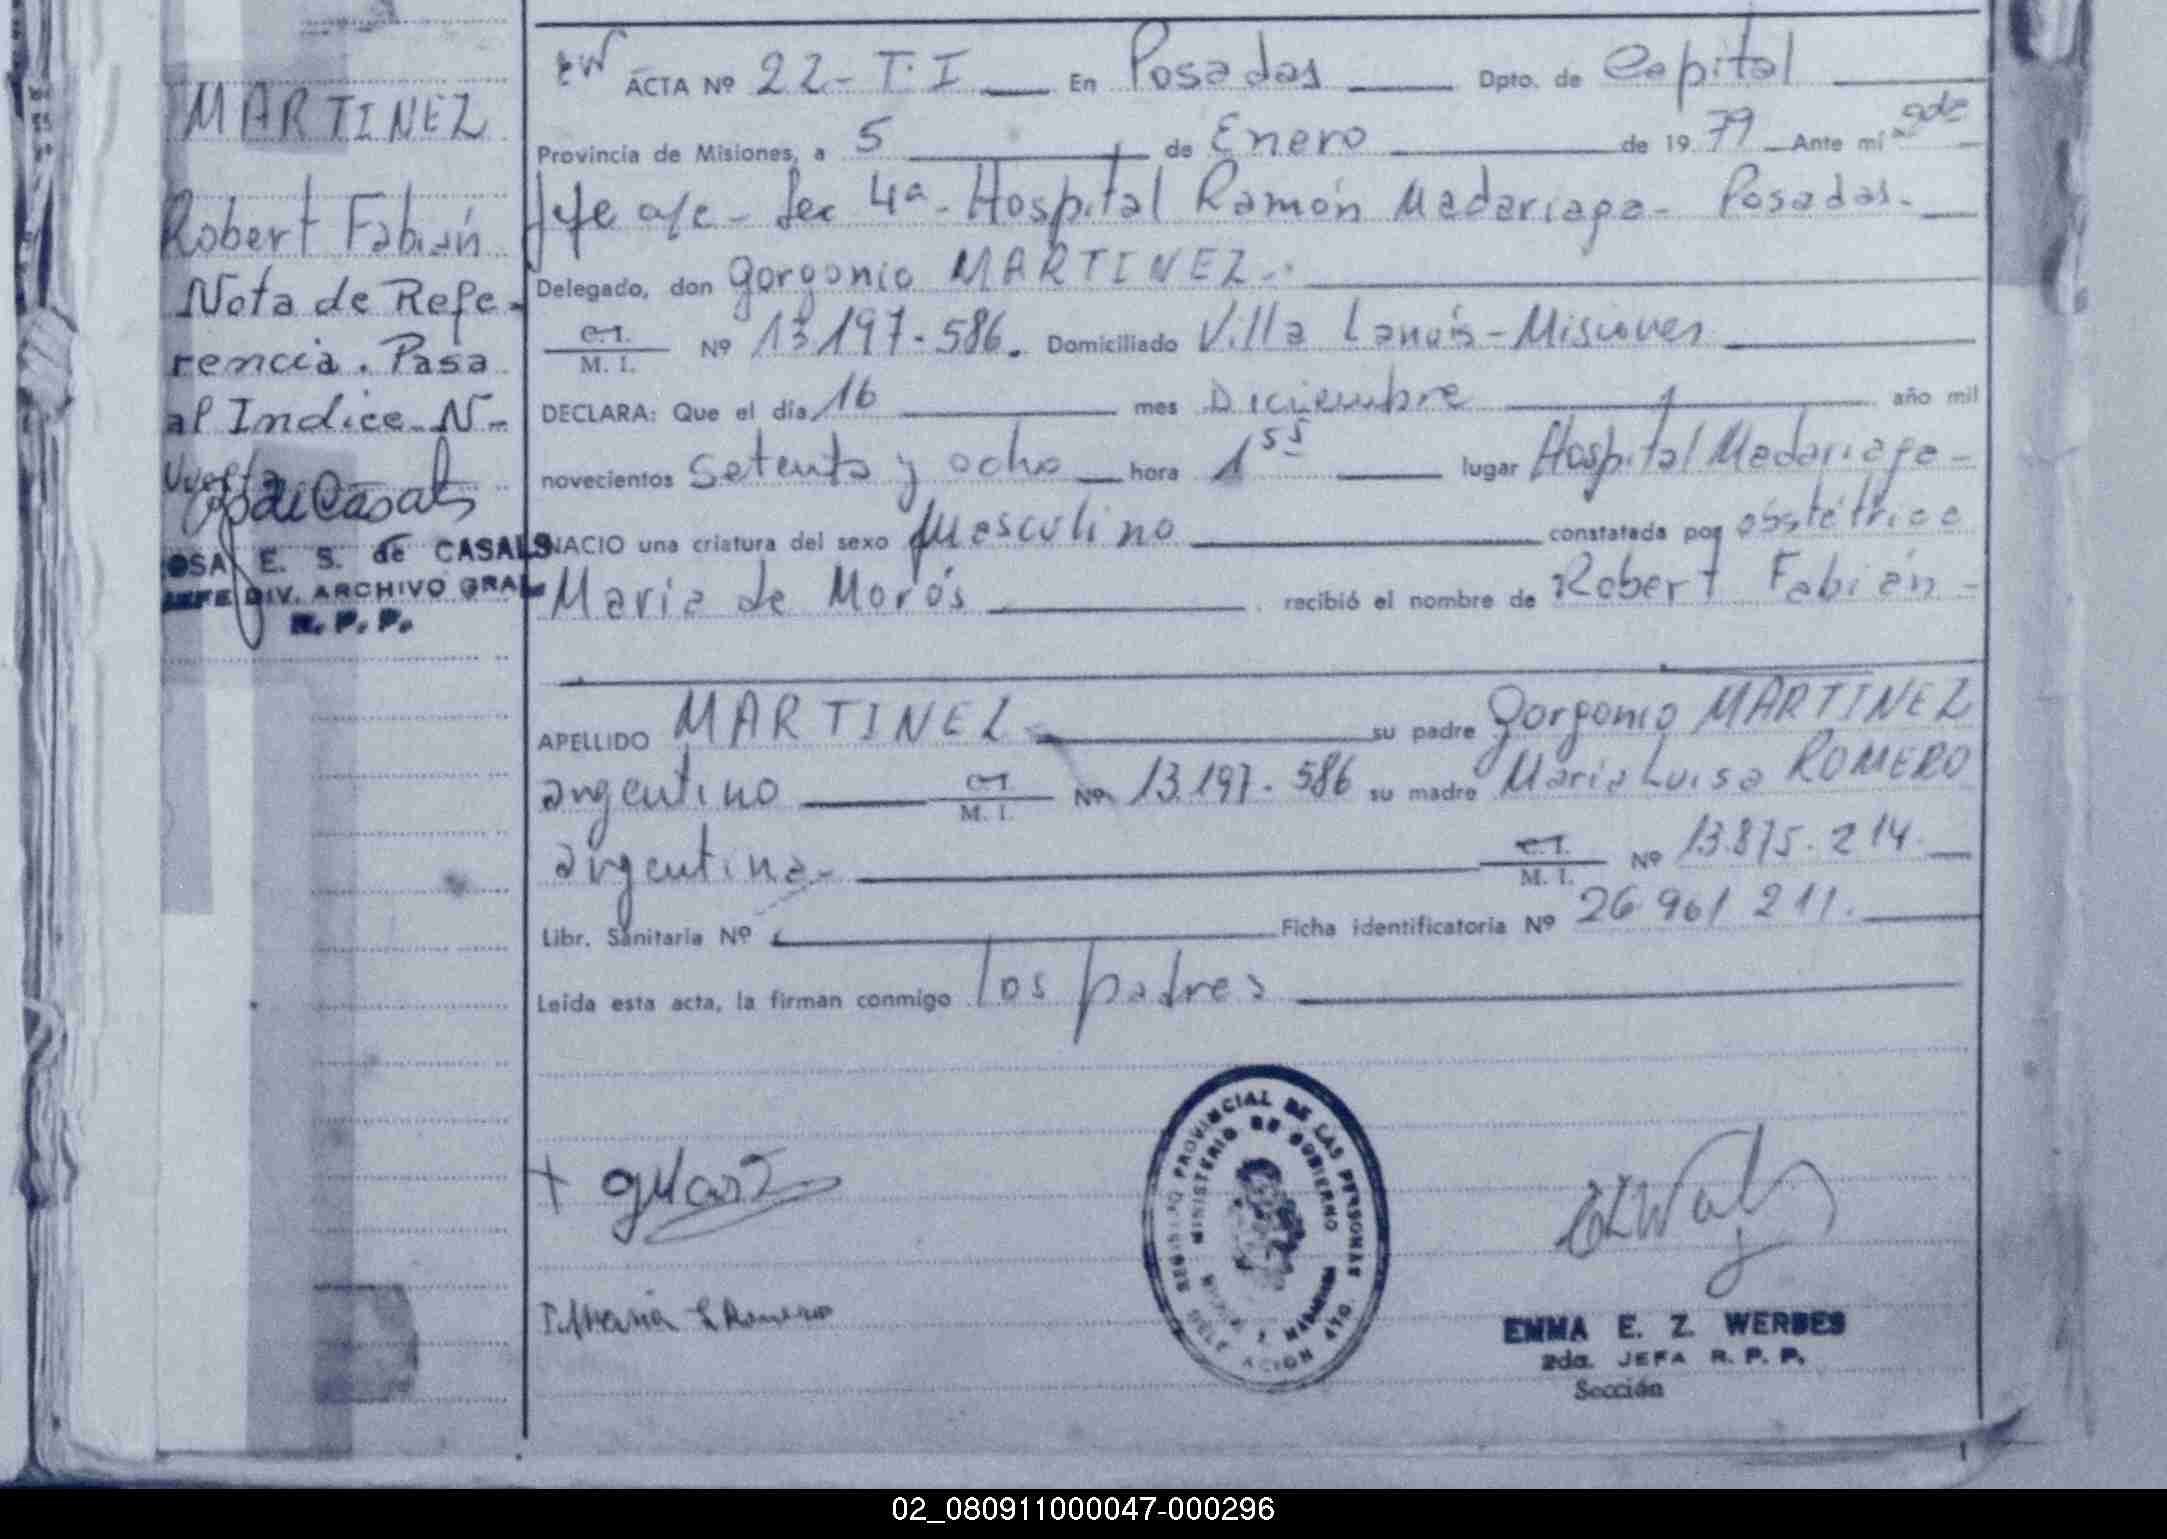 MARTINEZ
Robert Fabián
Nota de Refe-
rencia. Pasa
al Indice N-
Vuelta
ROSA E. S. de CASALS
JEFE DIV. ARCHIVO GRAL.
R. P. P.
ACTA Nº 22 - T. I En Posadas Dpto. de Capital
Provincia de Misiones, a 5 de Enero de 19 79 Ante mi 2da
Jefe a/c - Sec 4ª - Hospital Ramón Madariaga - Posadas.
Delegado, don Gorgonio MARTINEZ.
C.I.
M. I. Nº 13.197.586. Domiciliado Villa Lanús - Misiones
DECLARA: Que el día 16 mes Diciembre año mil
novecientos setenta y ocho hora 1 55 lugar Hospital Madariaga -
NACIO una criatura del sexo Masculino constatada por obstétrica
Maria de Morós recibió el nombre de Robert Fabián -
APELLIDO MARTINEZ su padre Gorgonio MARTINEZ
argentino C.I. M. I. Nº 13.197.586 su madre Maria Luisa ROMERO
argentina - C.I. M. I. Nº 13.875.214.
Libr. Sanitaria Nº Ficha identificatoria Nº 26 961 211.
Leída esta acta, la firman conmigo los padres
REGISTRO PROVINCIAL DE LAS PERSONAS
MINISTERIO DE GOBIERNO
Maria L Romero
EMMA E. Z. WERBES
2da. JEFA R. P. P.
Sección
02_080911000047-000296